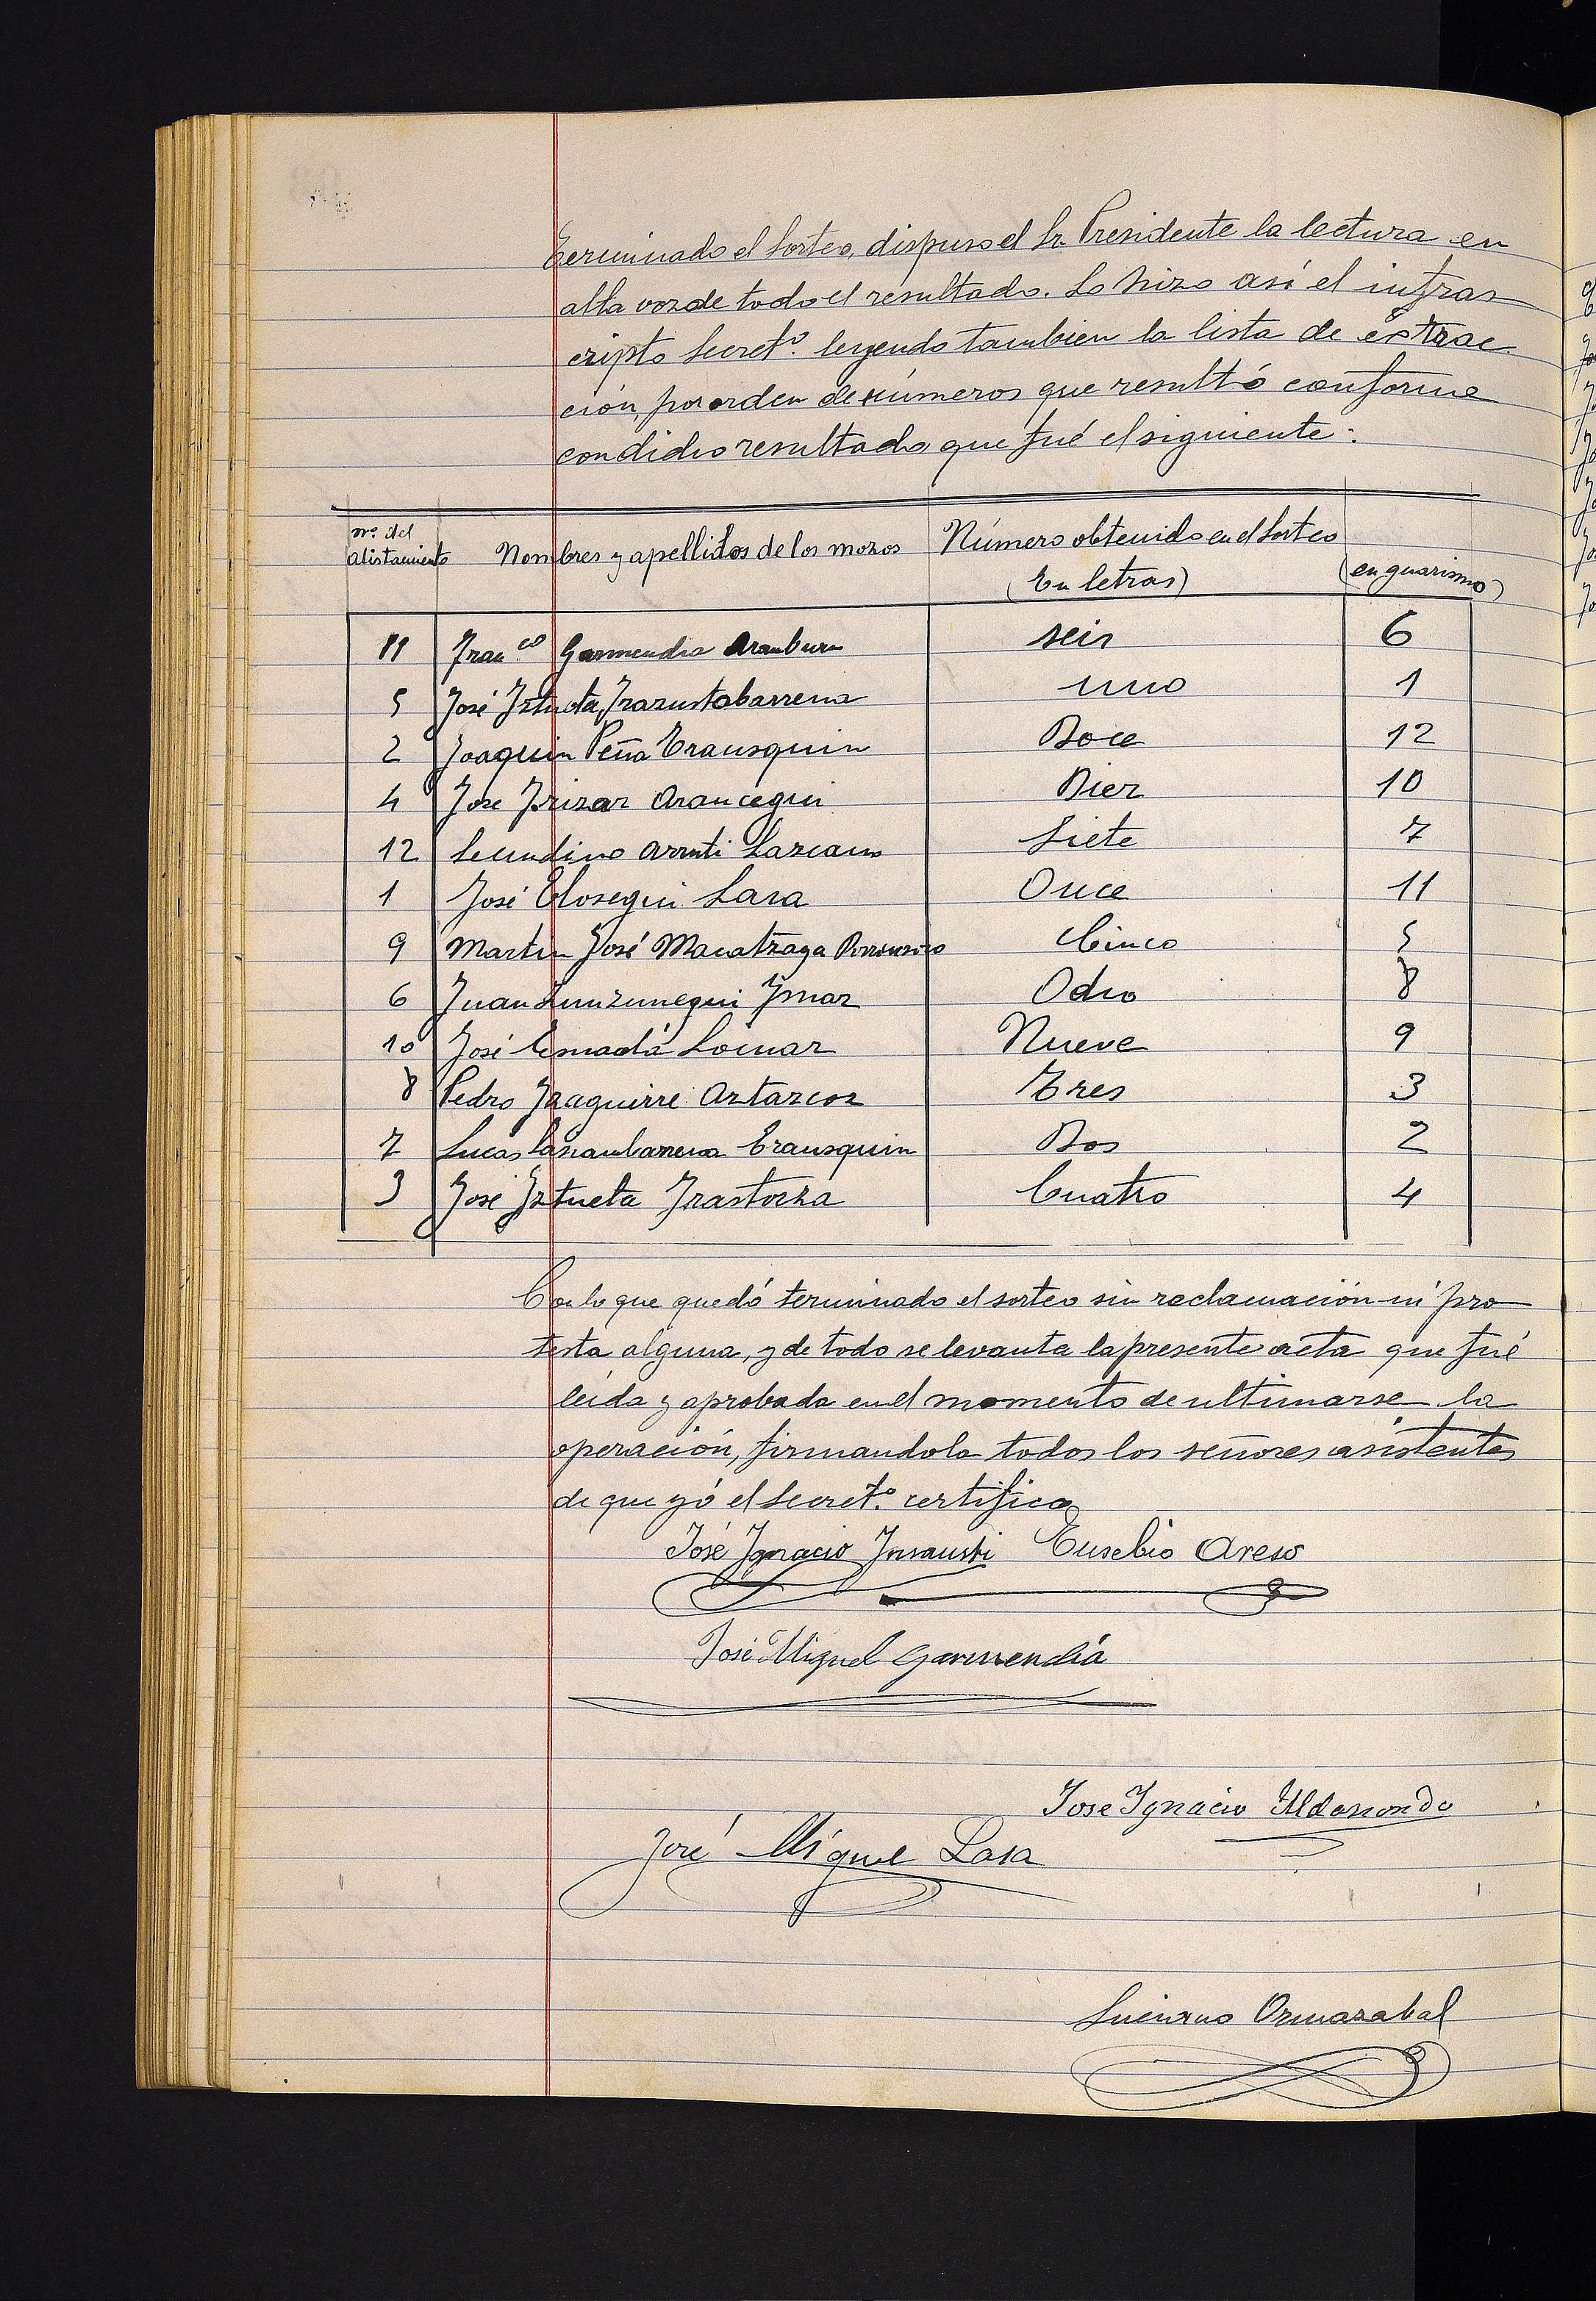 Terminado el sorteo, dispuso el Sr. Presidente la lectura en
alta voz de todo el resultado. Lo hizo así el infras
cripto Secretº. leyendo tambien la lista de extrac
ción, por orden de números que resultó conforme
con dicho resultado que fué el siguiente:
nº. del alistamiento Nombres y apellidos de los mozos Número obtenido en el sorteo
(En letras) (en guarismo)
11 Franco. Garmendia Aramburu seis 6
5 José Iztueta Irazustabarrena uno 1
2 Joaquin Peña Trausquin Doce 12
4 Jose Irizar Arancegui Diez 10
12 Secundino Arruti Lazcano Siete 7
1 José Elosegui Lasa Once 11
9 Martin José Macatzaga Cinco 5
6 Juan Zunzunegui Ymaz Ocho 8
10 José Loinaz Nueve 9
8 Pedro Izaguirre Aztarcoz Tres 3
7 Lucas Trausquin Dos 2
3 José Iztueta Irastorza Cuatro 4
Con lo que quedó terminado el sorteo sin reclamación ni pro
testa alguna, y de todo se levanta la presente acta que fué
leida y aprobada en el momento de ultimarse la
operación, firmandola todos los señores asistentes
de que yó el Secretº. certifico
José Ignacio Insausti Eusebio Areso
José Miguel Garmendia
Jose Ygnacio Aldasoro
José Miguel Lasa
Luciano Ormazabal